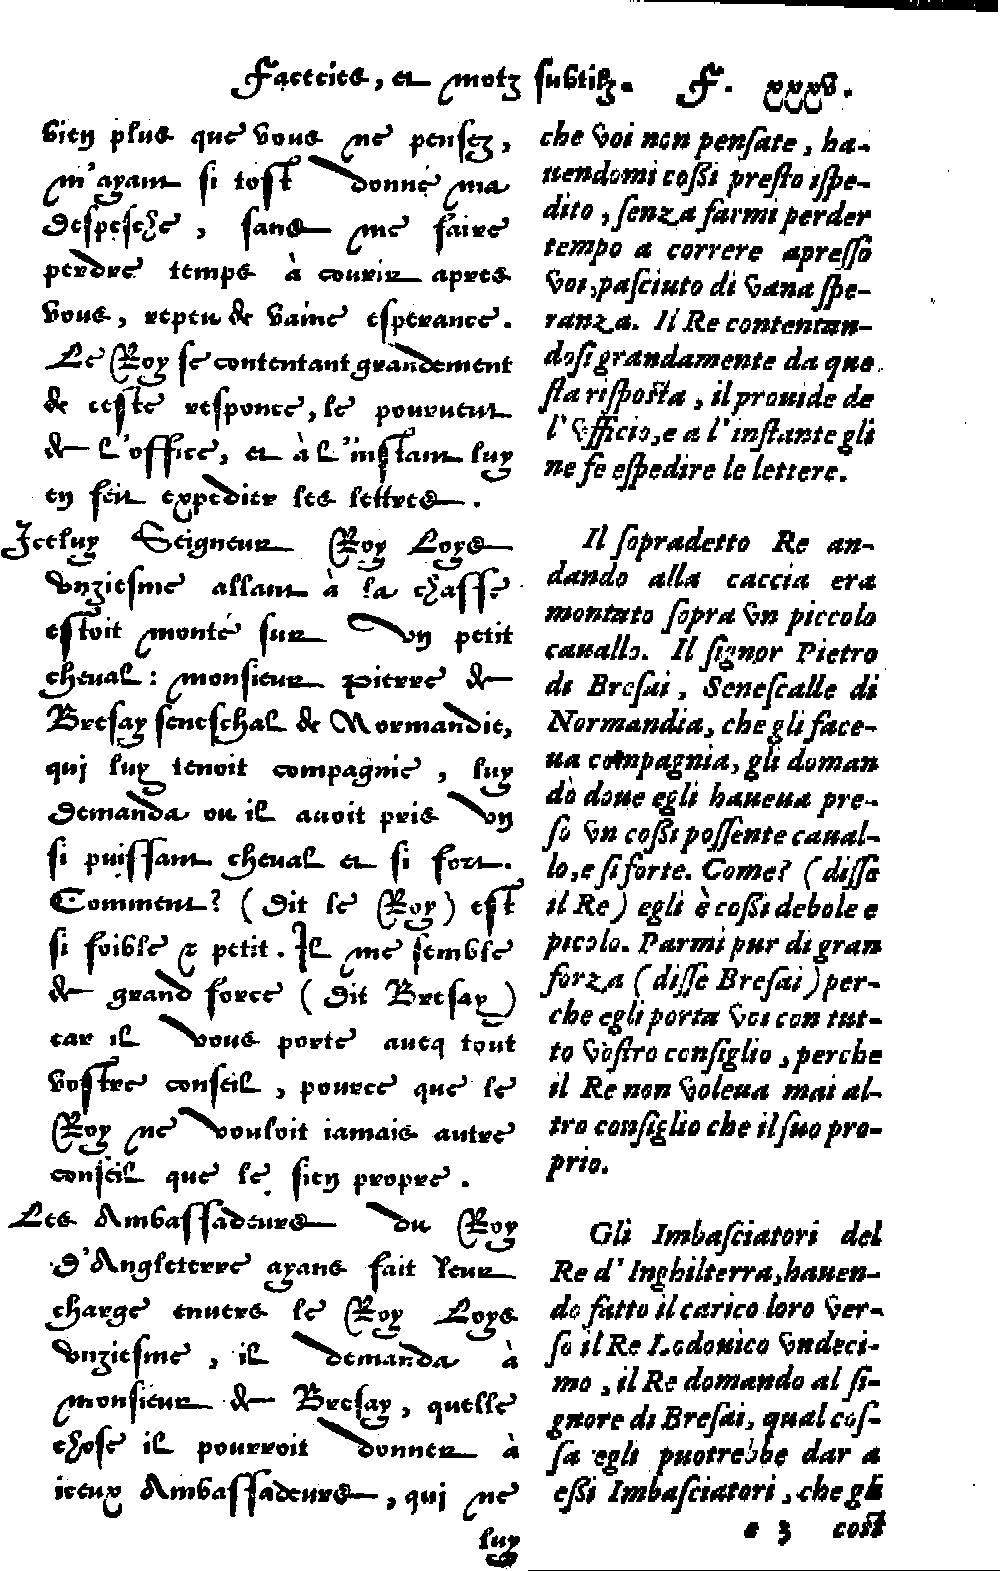 Facecies, et motz subtilz. F. xxxv.
bien plus que vous ne pensez,
m'ayant si tost donné ma
despesche, sans me faire
perdre temps à courir apres
vous, repeu de vaine esperance.
Le Roy se contentant grandement
de ceste responce, le pourueut
de l'office, et à l'instant luy
en feit expedier les lettres.
Iceluy Seigneur Roy Loys
vnziesme allant à la chasse
estoit monté sur vn petit
cheual: monsieur Pierre de
Bresay seneschal de Normandie,
qui luy tenoit compagnie, luy
demanda ou il auoit pris vn
si puissant cheual et si fort.
Comment? (dit le Roy) est
si foible & petit. Il me semble
de grand force (dit Bresay)
car il vous porte aueq tout
vostre conseil, pource que le
Roy ne vouloit iamais autre
conseil que le sien propre.
Les Ambassadeurs du Roy
d'Angleterre ayans fait leur
charge enuers le Roy Loys
vnziesme, il demanda à
monsieur de Bresay, quelle
chose il pourroit donner à
iceux Ambassadeurs, qui ne
luy
che voi non pensate, ha-
uendomi cossi presto ispe-
dito, senza farmi perder
tempo a correre apresso
voi, pasciuto di vana spe-
ranza. Il Re contentan-
dosi grandamente da que
sta risposta, il prouide de
l'Vfficio, e a l'instante gli
ne fe espedire le lettere.
Il sopradetto Re an-
dando alla caccia era
montato sopra vn piccolo
cauallo. Il signor Pietro
di Bresai, Senescalle di
Normandia, che gli face-
ua compagnia, gli doman
dò doue egli haueua pre-
so vn cossi possente caual-
lo, e si forte. Come? (disse
il Re) egli è cossi debole e
picolo. Parmi pur di gran
forza (disse Bresai) per-
che egli porta voi con tut-
to vostro consiglio, perche
il Re non voleua mai al-
tro consiglio che il suo pro-
prio.
Gli Imbasciatori del
Re d'Inghilterra, hauen-
do fatto il carico loro ver-
so il Re Lodouico vndeci-
mo, il Re domando al si-
gnore di Bresai, qual cos-
sa egli puotrebbe dar a
essi Imbasciatori, che gli
e 3 cost